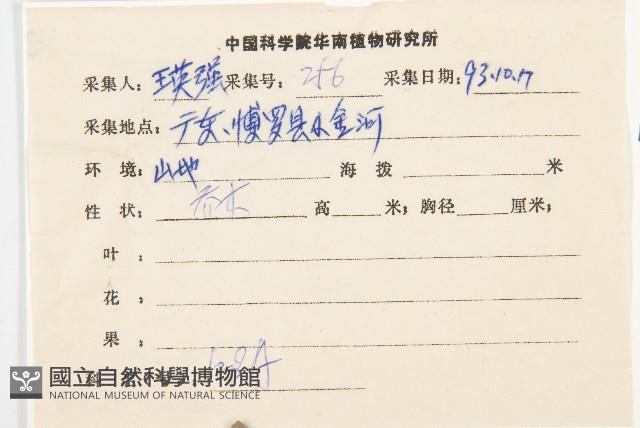 中国科学院华南植物研究所
采集人：王英强 采集号：256 采集日期：93.10.17
采集地点：广东、博罗县小金河
环 境：山地 海 拨 米
性 状：乔木 高 米；胸径 厘米；
叶 ：
花 ：
果 ：
國立自然科學博物館
NATIONAL MUSEUM OF NATURAL SCIENCE